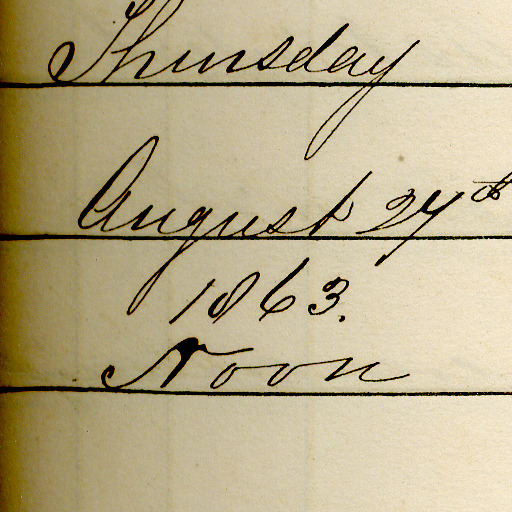 Thursday
August 27th
1863.
Noon